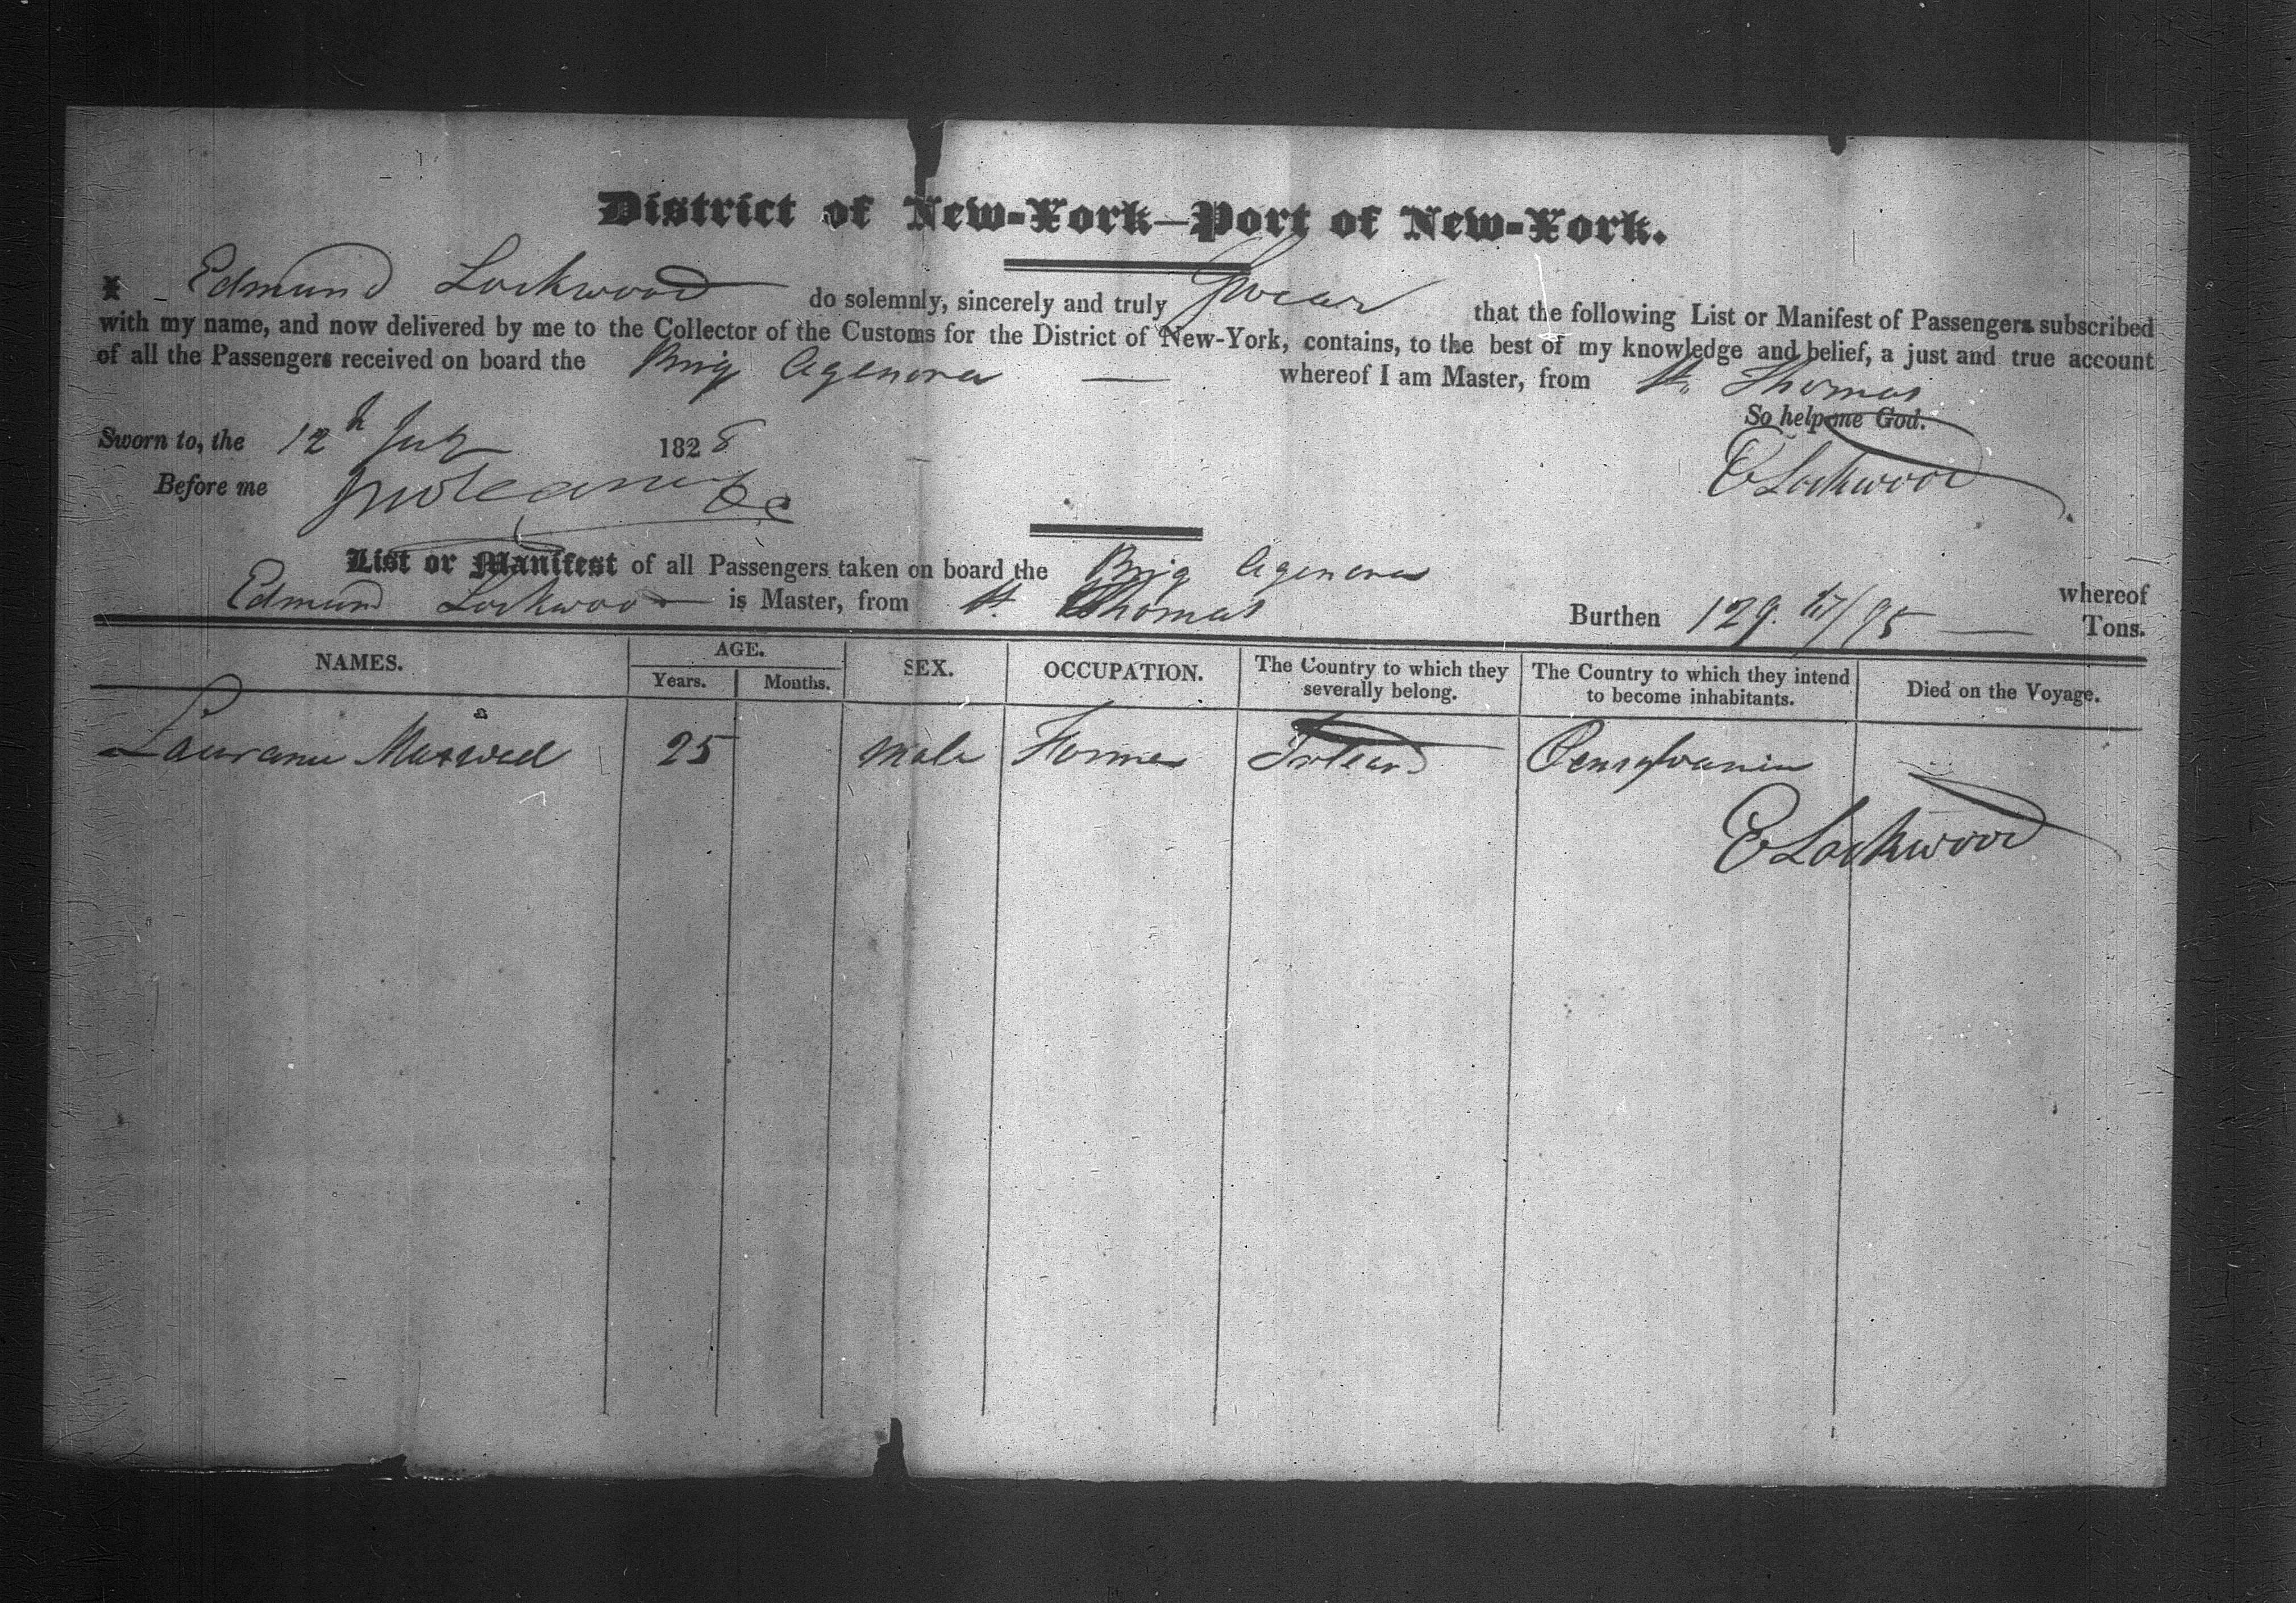 District of New-York—Port of New-York.
I Edmund Lockwood do solemnly, sincerely and truly Swear that the following List or Manifest of Passengers subscribed
with my name, and now delivered by me to the Collector of the Customs for the District of New-York, contains, to the best of my knowledge and belief, a just and true account
of all the Passengers received on board the Brig Agenora — whereof I am Master, from St. Thomas
So help me God.
Sworn to, the 12th July 1828
E Lockwood
Before me
List or Manifest of all Passengers taken on board the Brig Agenora whereof
Edmund Lockwood is Master, from St. Thomas Burthen 129. 17/95 — Tons.
NAMES. AGE. Years. Months. SEX. OCCUPATION. The Country to which they severally belong. The Country to which they intend to become inhabitants. Died on the Voyage.
Maxwell 25 Male Farmer Ireland Pensylvania
E Lockwood